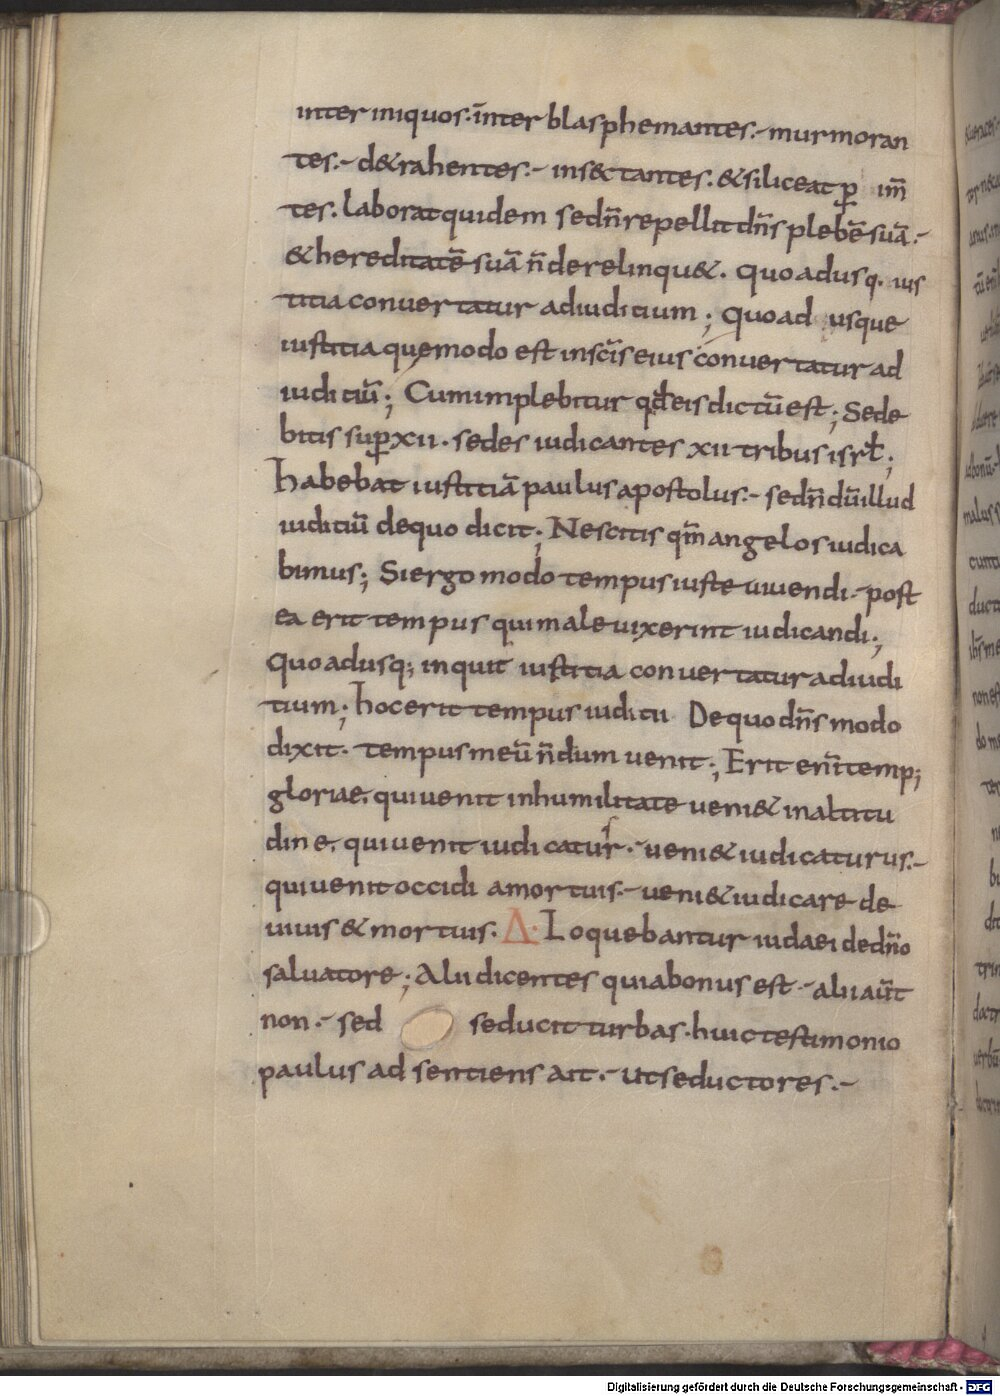 inter iniquos. int̄er blasphemantes.- murmoran
tes.- d&rahentes.- ins&tantes. & si liceat ꝑ im̄
tes. laborat quidem sed n̄ repellit dn̄s plebē suā.-
& hereditatē suā n̄ derelinqu&. quo adusq. ius
titia conuertatur ad iuditium; Quo ad usque
iustitia que modo est in sc̄is eius conuertatur ad
iuditiū; Cum implebitur qđ eis dictū est; Sede
bitis suꝑ xii. sedes iudicantes xii tribus isrł;
habebat iustitiā paulus apostolus.- sed n̄dū illud
iuditiū de quo dicit; Nescitis qm̄ angelos iudica
bimus; Si ergo modo tempus iuste uiuendi.- post
ea erit tempus qui male uixerint iudicandi;
Quo adusq; inquit iustitia conuertatur ad iudi
tium; hoc erit tempus iuditii De quo dn̄s modo
dixit. tempus meū n̄dum uenit.; Erit enī temp;
gloriae. qui uenit in humilitate ueni& in altitu
dine. qui uenit iudicatur. ueni& iudicaturus.-
qui uenit occidi a mortuis.- ueni& iudicare de
uiuis & mortuis. Δ. Loquebantur iudaei de dn̄o
saluatore; Alii dicentes quia bonus est.- alii aūt
non.- sed seducit turbas. huic testimonio
paulus adsentiens ait.- ut seductores.-
Digitalisierung gefördert durch die Deutsche Forschungsgemeinschaft - DFG